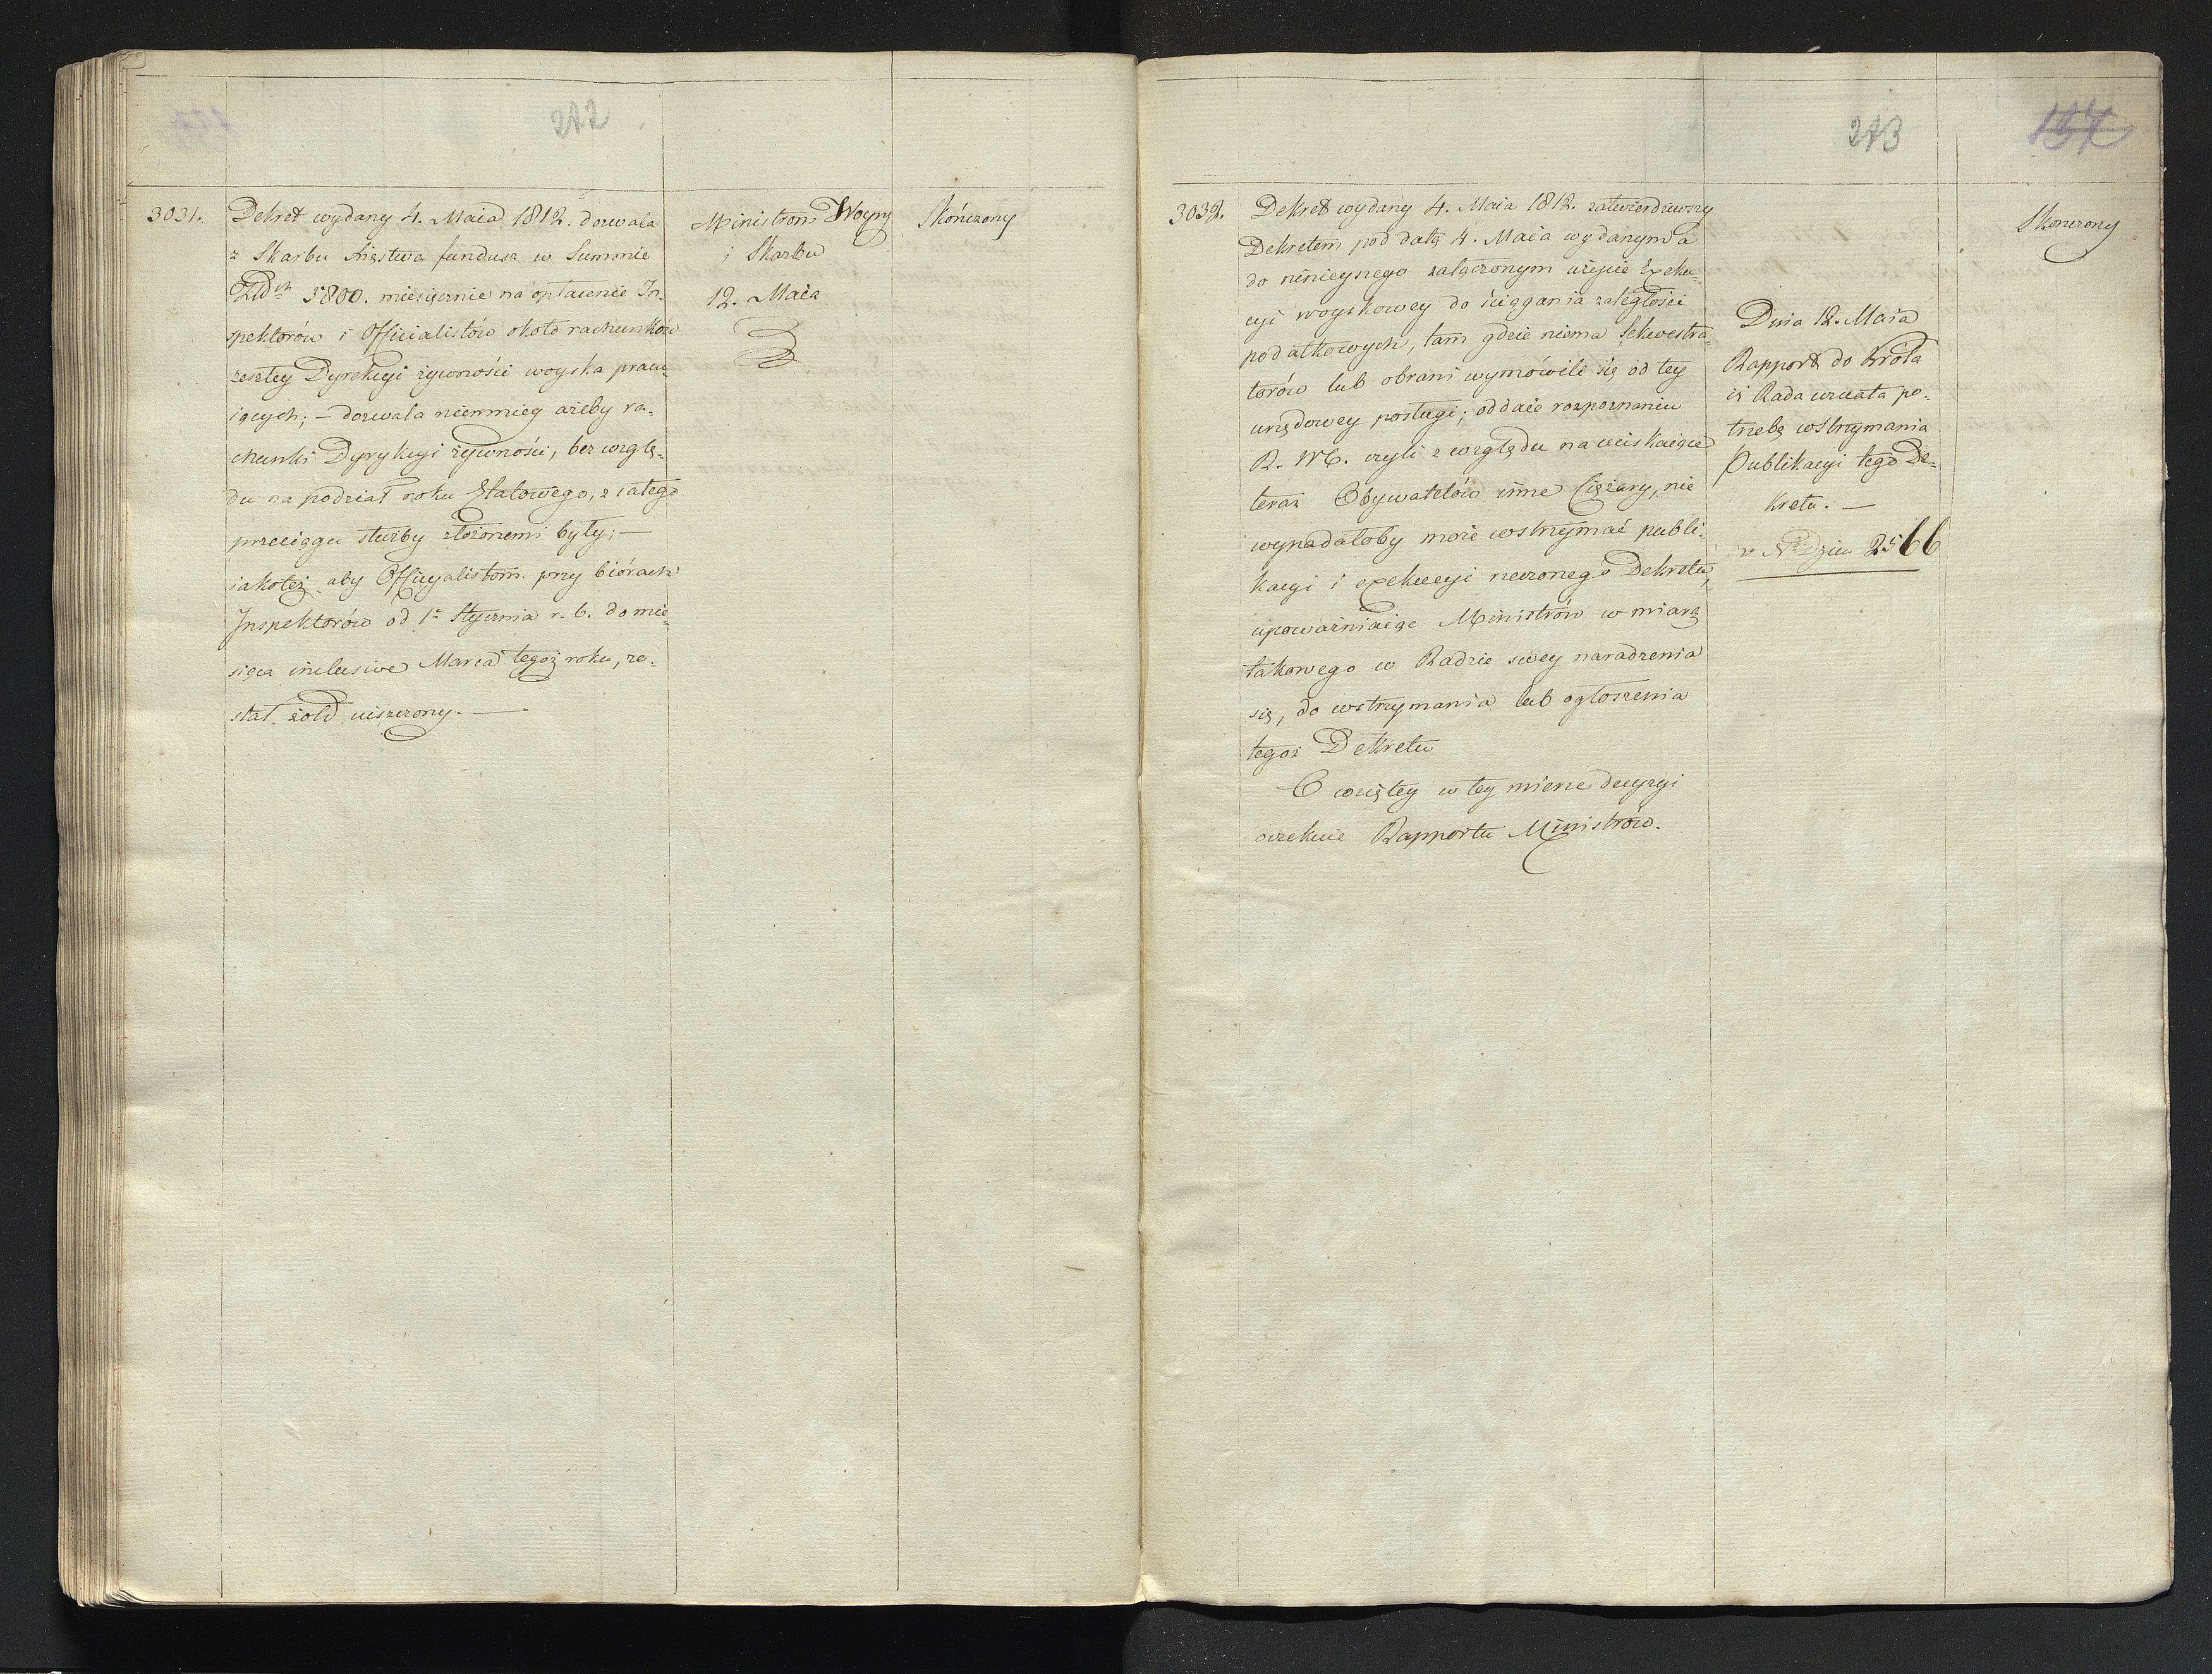 272
3031.
Dekret wydany 4. Maia 1812. dozwala
z Skarbu Xięstwa fundusz w Summie
Złtch 3800. miesięcznie na opłacenie In-
spektorów i Officialistów około rachunków
zeszłey Dyrekcyi żywności woyska pracu-
iących; – dozwala niemniey ażeby ra-
chunki Dyrykcyi żywności, bez wzglę-
du na podział roku Etatowego, z całego
przeciągu służby złożonemi były; –
iakoteż aby Officyalistom przy biórach
Inspektorów od 1o Stycznia r. b. do mie-
siąca inclusive Marca tegoż roku, zo-
stał żołd uiszczony. –
Ministrom Woyny
i Skarbu
12. Maia
Skończony
273
157
3032.
Dekret wydany 4. Maia 1812. zatwierdziwszy
Dekretem pod datą 4. Maia wydanym a
do ninieyszego załączonym użycie Exeku-
cyi woyskowey do ściągania zaległości
podatkowych, tam gdzie niema Sekwestra-
torów lub obrani wymówili się od tey
urzędowey posługi; oddaie rozpoznaniu
R. M. czyli z względu na uciskaiące
teraz Obywatelów inne Ciężary, nie
wypadałoby może wstrzymać publi-
kacyi i exekucyi rzeczonego Dekretu,
upoważniaiąc Ministrów w miarę
takowego w Radzie swey naradzenia
się, do wstrzymania lub ogłoszenia
tegoż Dekretu
O wziętey w tey mierze decyzyi
oczekuie Rapportu Ministrów.
Dnia 12. Maia
Rapport do Króla
iż Rada uznała po-
trzebę wstrzymania
Publikacyi tego De-
kretu. –
v. No Dzien 2566
Skonczony